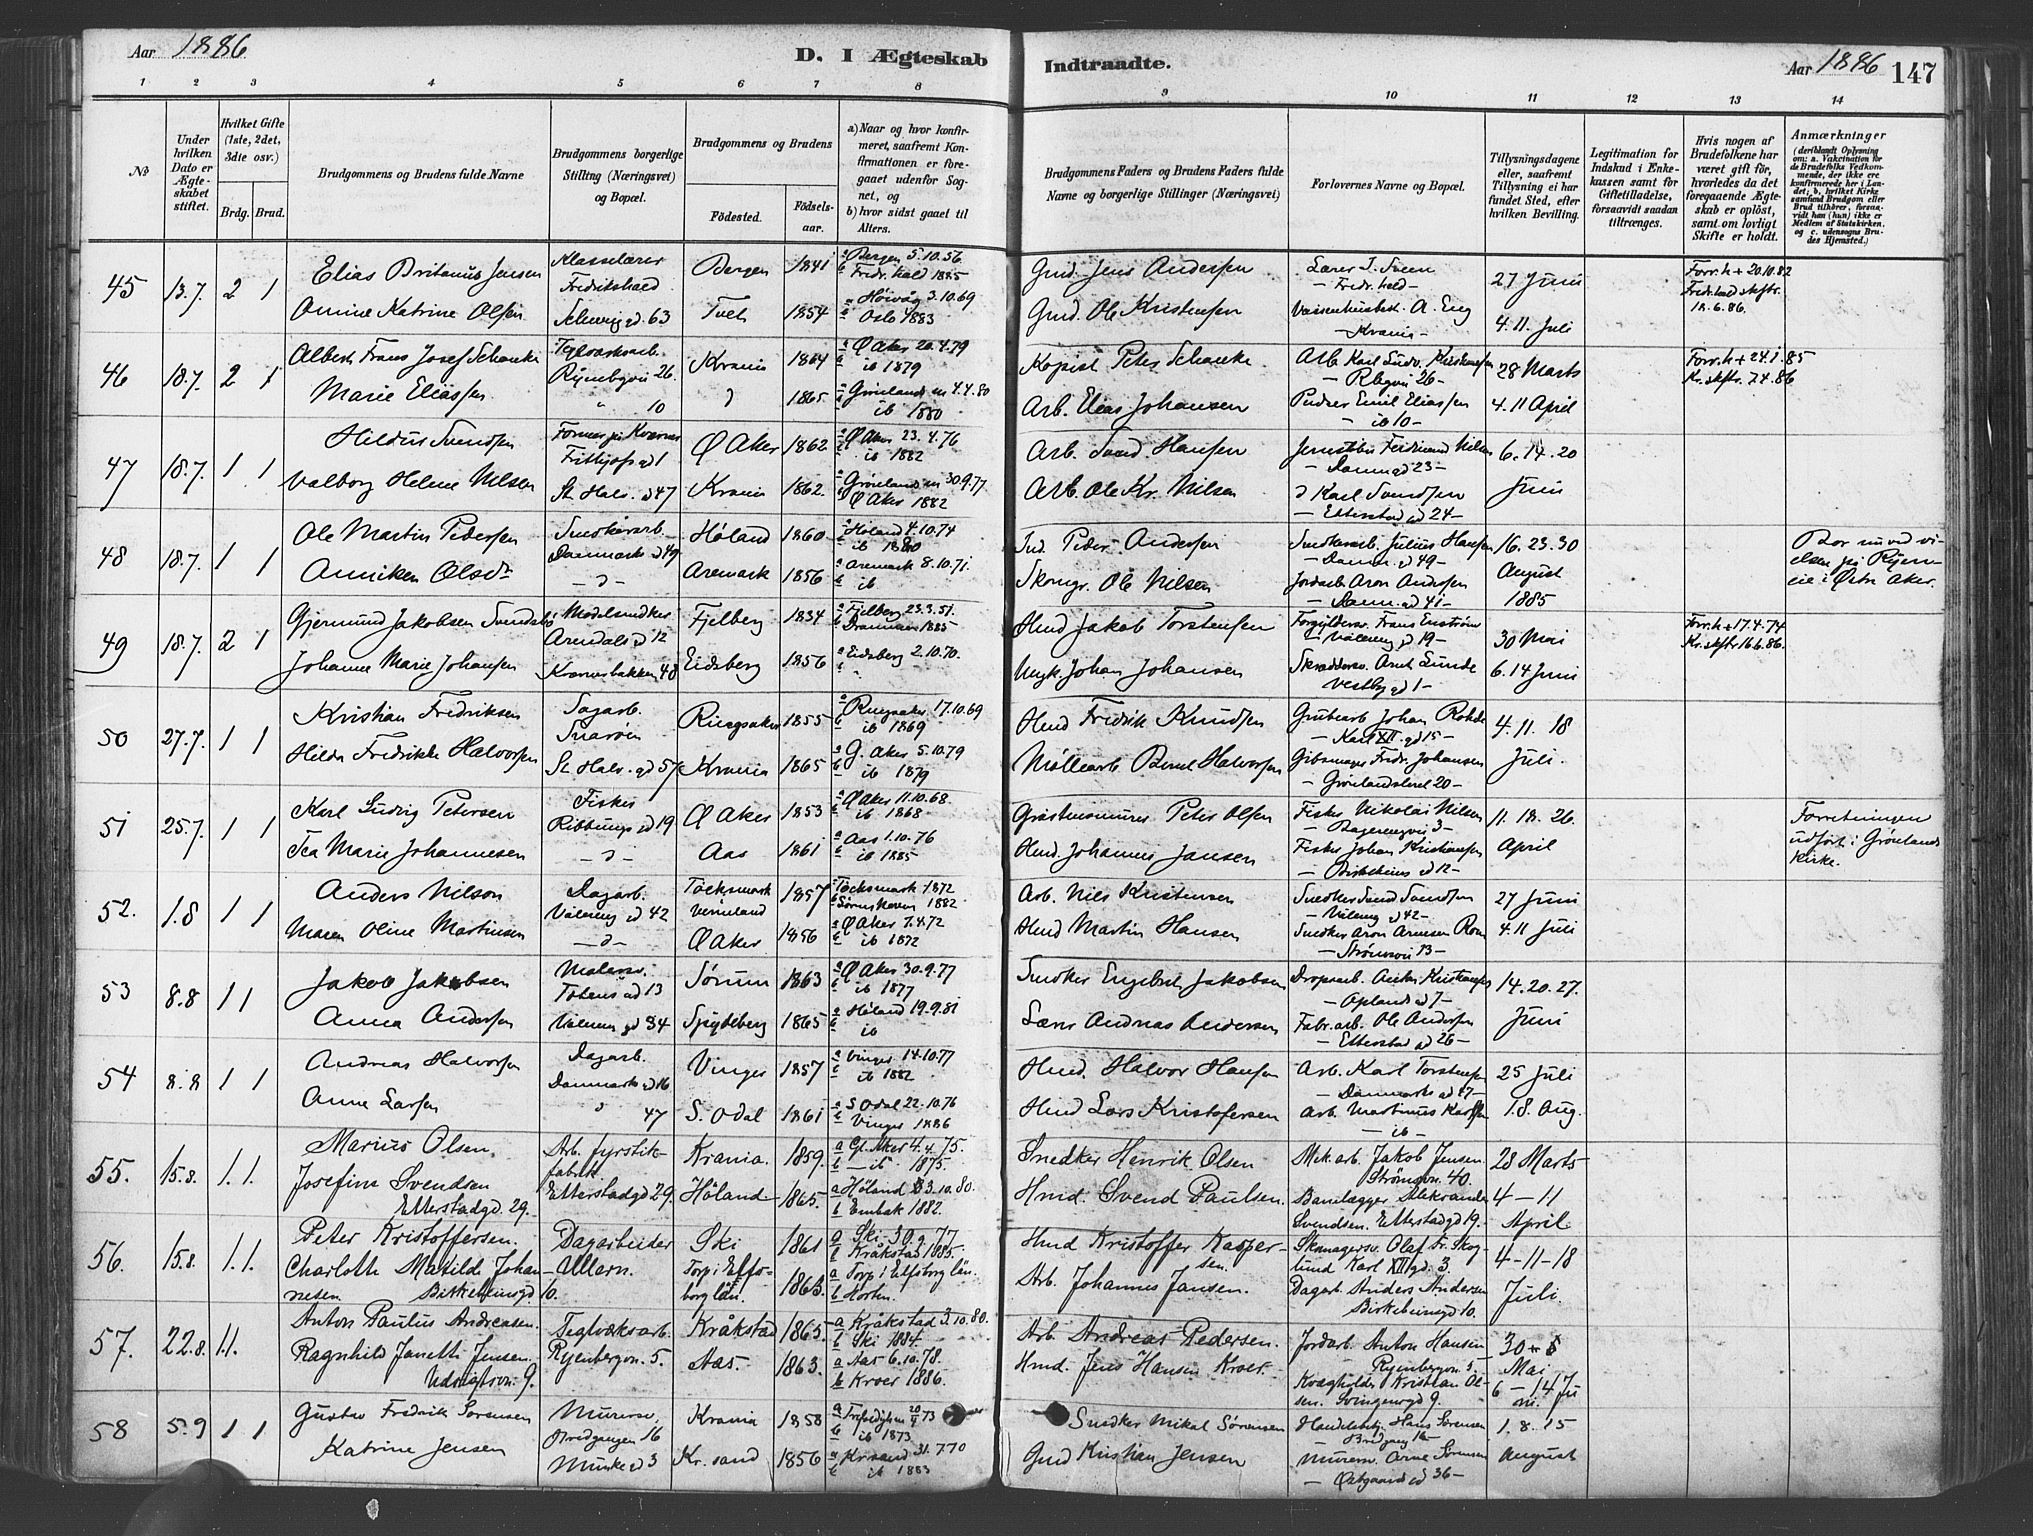 Aar 1886
D. I Ægteskab
Indtraadte.
Aar 1886 147
1 2 3 4 5 6 7 8 9 10 11 12 13 14
No
Under hvilken Dato er Ægteskabet stiftet.
Hvilket Gifte (1ste, 2det, 3die osv.)
Brdg. Brud.
Brudgommens og Brudens fulde Navne
Brudgommens borgerlige Stilling (Næringsvei) og Bopæl.
Brudgommens og Brudens
Fødested.
Fødselsaar.
a) Naar og hvor konfirmeret, saafremt Konfirmationen er foregaaet udenfor Sognet, og
b) hvor sidst gaaet til Alters.
Brudgommens Faders og Brudens Faders fulde Navne og borgerlige Stillinger (Næringsvei)
Forlovernes Navne og Bopæl.
Tillysningsdagene eller, saafremt Tillysning ei har fundet Sted, efter hvilken Bevilling.
Legitimation for Indskud i Enkekassen samt for Giftetilladelse, forsaavidt saadan tiltrænges.
Hvis nogen af Brudefolkene har været gift før, hvorledes da det foregaaende Ægteskab er opløst, samt om lovligt Skifte er holdt.
Anmærkninger
(deriblandt Oplysning om: a. Vakcination for de Brudefolks Vedkommende, der ikke ere konfirmerede her i Landet; b, hvilket Kirkesamfund Brudgom eller Brud tilhører, forsaavidt han (hun) ikke er Medlem af Statskirken, og c. udensogns Brudes Hjemsted.)
45 13.7. 2 1 Elias Britanus Jensen Klasselærer Fredrikshald Bergen 1841 a Bergen 5.10.56 b Fredr.hald 1885 Gmd. Jens Andersen Lærer J. Sveen – Fredr.hald – 27 Juni Forr. h + 20.10.82 Fredr.hald skftr. 18.6.86.
Amine Katrine Olsen Schweigsgd. 63 Tvet 1854 a Høivåg 3.10.69 b Oslo 1883 Gmd. Ole Kristensen A. Eng – Krania – 4.11. Juli
46 18.7. 2 1 Albert Frans Josef Schanke Teglværksarb. Ryenbgvei 26. Krania 1864 a Ø Aker 20.4.79 b ib 1879 Kopist Peter Schanke Arb. Karl Ludv. Kristensen – Rbgvei 26 – 28 Marts Forr. h + 24.1.85 Kr. skftr. 7.4.86
Marie Eliassen " 10 1865 a Grønlands m 4.4.80 b ib 1880 Arb. Elias Johansen Pudser Emil Eliassen – ib 10 – 4.11 April
47 18.7. 1 1 Hildus Svendsen Former på Kværner Frithjofs gd 1 Ø Aker 1862 a Ø Aker 23.4.76 b ib 1882 Arb. Svend Hansen Jernstøber Ferdinand Nilsen – Danm. gd 23 – 6.14.20
Valborg Helene Nilsen St Halv. gd 47 Krania 1862. a Grønlands m 30.9.77 b Ø Aker 1882 Arb. Ole Kr. Nilsen d Karl Svendsen – Etterstad gd 24 – Juni
48 18.7. 1 1 Ole Martin Pedersen Snedkerarb. Danmarks gd 49 Høland 1860 a Høland 4.10.74 b ib 1880 Ind. Peder Andersen Snedkerarb. Julius Hansen – Danm. gd 49 – 16.23.30 Bor nu ved vielsen på Ryenveie i Østre Aker.
Anniken Olsdr – d – Aremark 1856 a Aremark 8.10.71. b ib Skomgr. Ole Nilsen Jordarb Aron Andersen – Danm. gd 41 – August 1885
49 18.7. 2 1 Gjermund Jakobsen Svendsbø Modelsnedker Arendals gd 12 Fjelberg 1834 a Fjelberg 23.3.51. b Drammen 1885 Hmd Jakob Torstensen Forgyldersv. Frans Enstrøm – Vålereng gd 19 – 30 Mai Forr. h + 17.4.74 Kr. skftr 16.6.86.
Johanne Marie Johansen Kværnerbakken 48 Eidsberg 1856 a Eidsberg 2.10.70. b " Ungk. Johan Johansen Skræddersv. Arnt Lunde Vestby gd 1 – 6.14 Juni
50 27.7. 1 1 Kristian Fredriksen Sagarb. Snarøen Ringsaker 1855 a Ringsaker 17.10.69 b ib 1869 Hmd Fredrik Knudsen Grubearb Johan Rohde – Karl XII. gd 15 – 4.11.18
Hilda Fredrikke Halvorsen St Halv. gd 57 Krania 1865 a G. Aker 5.10.79 b ib 1879 Møllearb Bernt Halvorsen Gibsmager Fredr. Johansen – Grønlandsleret 20 – Juli.
51 25.7. 1 1 Karl Ludvig Petersen Fisker Ribbungs gd 19 Ø Aker 1853 a Ø Aker 11.10.68. b ib 1868 Gråstensmurer Peter Olsen Fisker Nikolai Nilsen 11.18.26. Forretningen udført i Grønlands Kirke.
Tea Marie Johannesen – d – Aas 1861 a Aas 1.10.76 b ib 1885 Hmd. Johannes Jansen Fisker Johan Kristiansen – Birkebeins gd 12 – April
52. 1.8 1 1 Anders Nilson Dagarb. Vålereng gd 42 Töcksmark Vermland 1857 a Töcksmark 1872 b 1882 Arb. Nils Kristensen Snedker Svend Svendsen – Vålereng gd 42 – 27 Juni
Maren Oline Martinsen – d – Ø Aker 1856 a Ø Aker 7.4.72 b ib 1872 Hmd Martin Hansen Snedker Aron Arnesen – Strømsvei 13 – 4.11 Juli
53 8.8 1 1 Jakob Jakobsen Malersv. Totens gd 13 Sørum 1863 a Ø Aker 30.9.77 b ib 1877 Snedker Engebret Jakobsen Dropsarb. Anton Kristiansen – Oplands gd 7 – 14.20.27.
Anna Andersen Vålereng gd 34 Spydeberg 1865 a Høland 19.9.81 b ib Lærer Andreas Andersen Fabr.arb. Ole Andersen – Etterstad gd 26 – Juni
54 8.8 1 1 Andreas Halvorsen Dagarb. Danmarks gd 16 Vinger 1857 a Vinger 14.10.77 b ib 1882 Hmd. Halvor Hansen Arb. Karl Torstensen – Danmarks gd 47 – 25 Juli
Anne Larsen " 47 S. Odal 1861 a S Odal 22.10.76 b Vinger 1886 Hmd Lars Kristofersen Arb. Martinus Karlsen – ib – 1.8. Aug.
55. 15.8. 1. 1. Marius Olsen. Arb. fyrstikfabrik Krania. 1859. a Gl. Aker 4.4.75. b – ib 1875. Snedker Henrik Olsen Mek.arb. Jakob Jensen Strømsvn. 40. 28 Marts
Josefine Svendsen Etterstadgd. 29. Etterstadgd 29. Høland 1865. a Høland 3.10.80. b Enebak 1882. Hmd. Svend Paulsen. Banelægger Aleksander Svendsen. Etterstadgd 19. 4–11 April
56. 15.8. 1. 1. Peter Kristoffersen. Dagarbeider Ullern. Ski 1861 a Ski 30.9.77 b Kråkstad 1885. Hmd Kristoffer Kaspersen. Skomagersv. Olaf Fr. Skoglund Karl XII gd. 3. 4–11–18
Charlotte Matilde Johannesen Birkebeinsgd 10. Torp i Elfsborg län. 1863. a Torp i Elfsborg län. b Horten. Arb. Johannes Jansen. Dagarb. Anders Andersen Birkebeinsgd 10. Juli.
57. 22.8. 1 1. Anton Paulus Andreasen. Teglværksarb. Ryenbergvn. 5. Kråkstad 1865. a Kråkstad 3.10.80. b Ski 1884. Arb. Andreas Pedersen. Jordarb. Anton Hansen Ryenbergvn. 5 – 30 Mai
Ragnhild Janette Jensen. Udsigtsvn. 9. Aas. 1863. a Aas 6.10.78. b Kroer 1886. Hmd. Jens Hansen Kroer. Kvægholder Kristian Olsen. Svingensgd 9. 6–14 Juni.
58 5.9 1 1 Gustav Fredrik Sørensen Murersv. Bredgangen 16 Krania 1858 a Trefoldighm 73 b ib 1873 Snedker Mikal Sørensen Handelsbetj. Hans Sørensen Bredgang 16 – 1.8.15
Katrine Jensen Munke gd 3 Kr.sand 1856 a Kr.sand 31.7.70 b ib 1883 Gmd Kristian Jensen Murerm. Arne Sørensen – Østgaards gd 36 – August